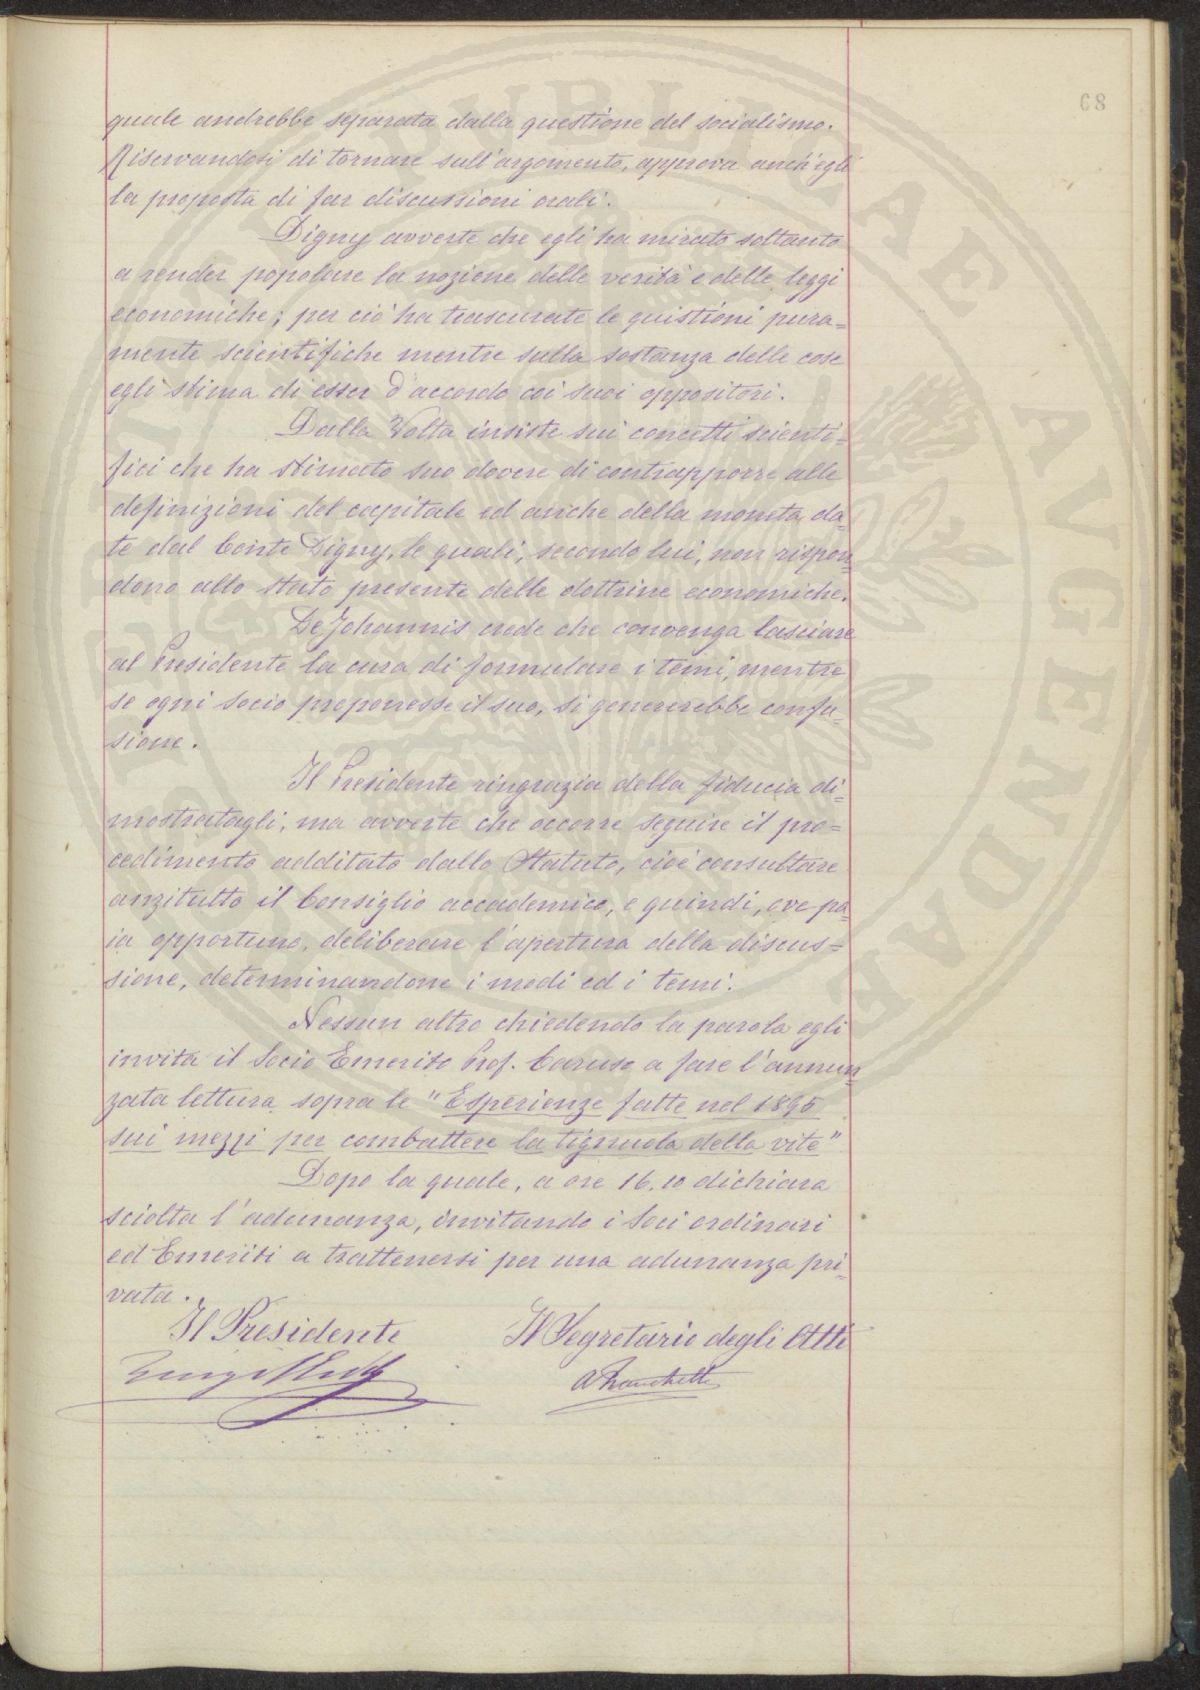 68
quale andrebbe separata dalla questione del socialismo.
Riservandosi di tornare sull'argomento, approva anch'egli
la proposta di far discussioni orali.
Digny avverte che egli ha mirato soltanto
a render popolare la nozione delle verità e delle leggi
economiche; per ciò ha trascurate le quistioni pura=
mente scientifiche mentre sulla sostanza delle cose
egli stima di esser d'accordo coi suoi oppositori.
Dalla Volta insiste sui concetti scienti=
fici che ha stimato suo dovere di contrapporre alle
definizioni del capitale ed anche della moneta, da=
te dal Conte Digny, le quali, secondo lui, non rispon=
dono allo stato presente delle dottrine economiche.
De Johannis crede che convenga lasciare
al Presidente la cura di formulare i temi, mentre
se ogni socio proponesse il suo, si genererebbe confu=
sione.
Il Presidente ringrazia della fiducia di=
mostratagli, ma avverte che occorre seguire il pro=
cedimento additato dallo Statuto, cioè consultare
anzitutto il Consiglio accademico, e quindi, ove pa=
ia opportuno, deliberare l'apertura della discus=
sione, determinandone i modi ed i temi.
Nessun altro chiedendo la parola egli
invita il Socio Emerito Prof. Caruso a fare l'annun=
zata lettura sopra le "Esperienze fatte nel 1895
sui mezzi per combattere la tignuola della vite"
Dopo la quale, a ore 16.10 dichiara
sciolta l'adunanza, invitando i Soci ordinari
ed Emeriti a trattenersi per una adunanza pri=
vata.
Il Presidente Il Segretario degli Atti
PUBLICAE AVGENDAE